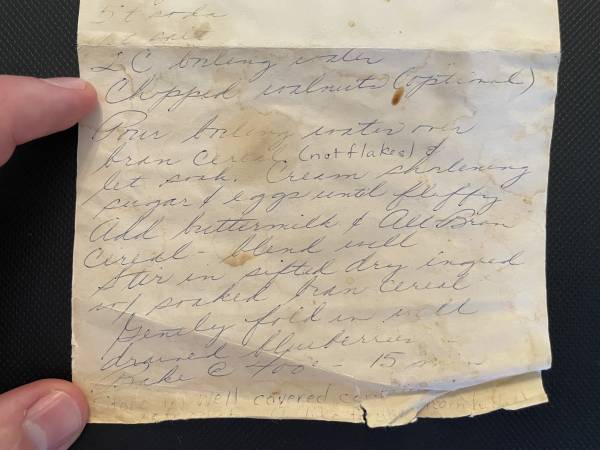 5 t soda
salt
2 C boiling water
Chopped walnuts (optional)
Pour boiling water over
bran cereal (not flakes) &
let soak. Cream shortening
sugar & eggs until fluffy
Add buttermilk & All Bran
cereal - blend well
Stir in sifted dry ingred
w/ soaked bran cereal
Gently fold in well
drained blueberries -
Bake @ 400° - 15 min
Store in well covered
like